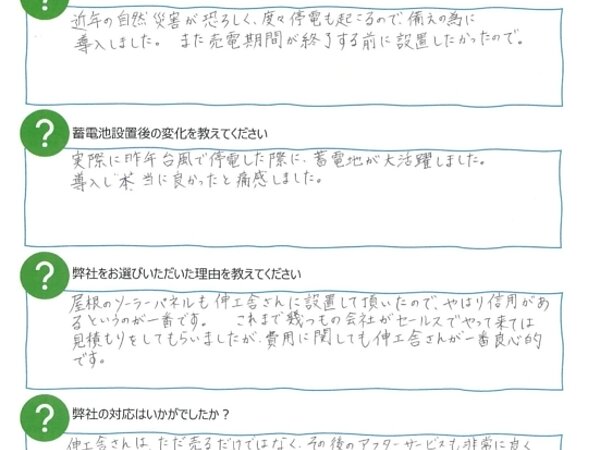 ?
近年の自然災害が恐ろしく、度々停電も起こるので、備えの為に
導入しました。 また売電期間が終了する前に設置したかったので。
?
蓄電池設置後の変化を教えてください
実際に昨年台風で停電した際に、蓄電地が大活躍しました。
導入し本当に良かったと痛感しました。
?
弊社をお選びいただいた理由を教えてください
屋根のソーラーパネルも伸工舎さんに設置して頂いたので、やはり信用があ
るというのが一番です。 これまで幾つもの会社がセールスでやって来ては
見積もりをしてもらいましたが、費用に関しても伸工舎さんが一番良心的
です。
?
弊社の対応はいかがでしたか？
伸工舎さんは、ただ売るだけではなく、その後のアフターサービスも非常に良く